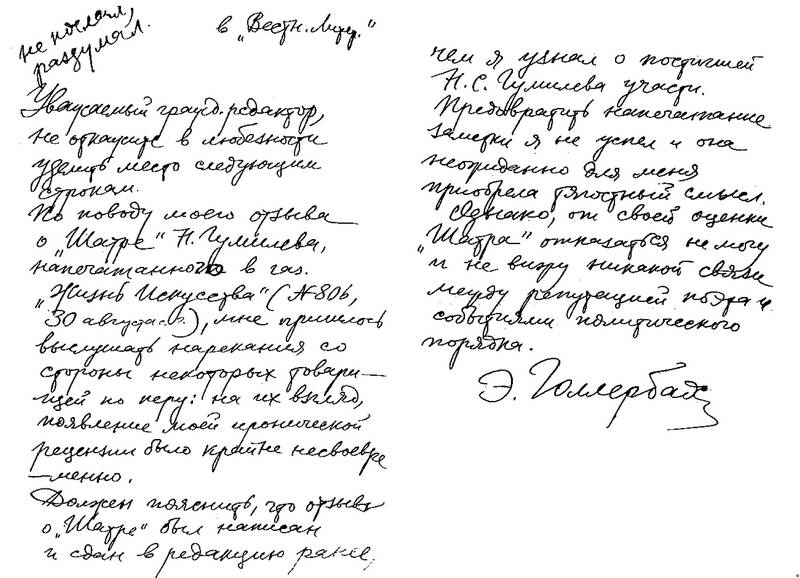 не послал,
раздумал.
в „Вестн. Литер."
Уважаемый гражд. редактор,
не откажите в любезности
уделить место следующим
строкам.
По поводу моего отзыва
о „Шатре" Н. Гумилева,
напечатанного в газ.
„Жизнь Искусства" (№ 806,
30 августа с.г.), мне пришлось
выслушать нарекания со
стороны некоторых товари—
щей по перу: на их взгляд,
появление моей иронической
рецензии было крайне несвоевре
—менно.
Должен пояснить, что отзыв
о „Шатре" был написан
и сдан в редакцию ранее,
чем я узнал о постигшей
Н. С. Гумилева участи.
Предотвратить напечатание
заметки я не успел и она
неожиданно для меня
приобрела тягостный смысл.
Однако, от своей оценки
„Шатра" отказаться не могу
и не вижу никакой связи
между репутацией поэта и
событиями политического
порядка.
Э. Голлербах